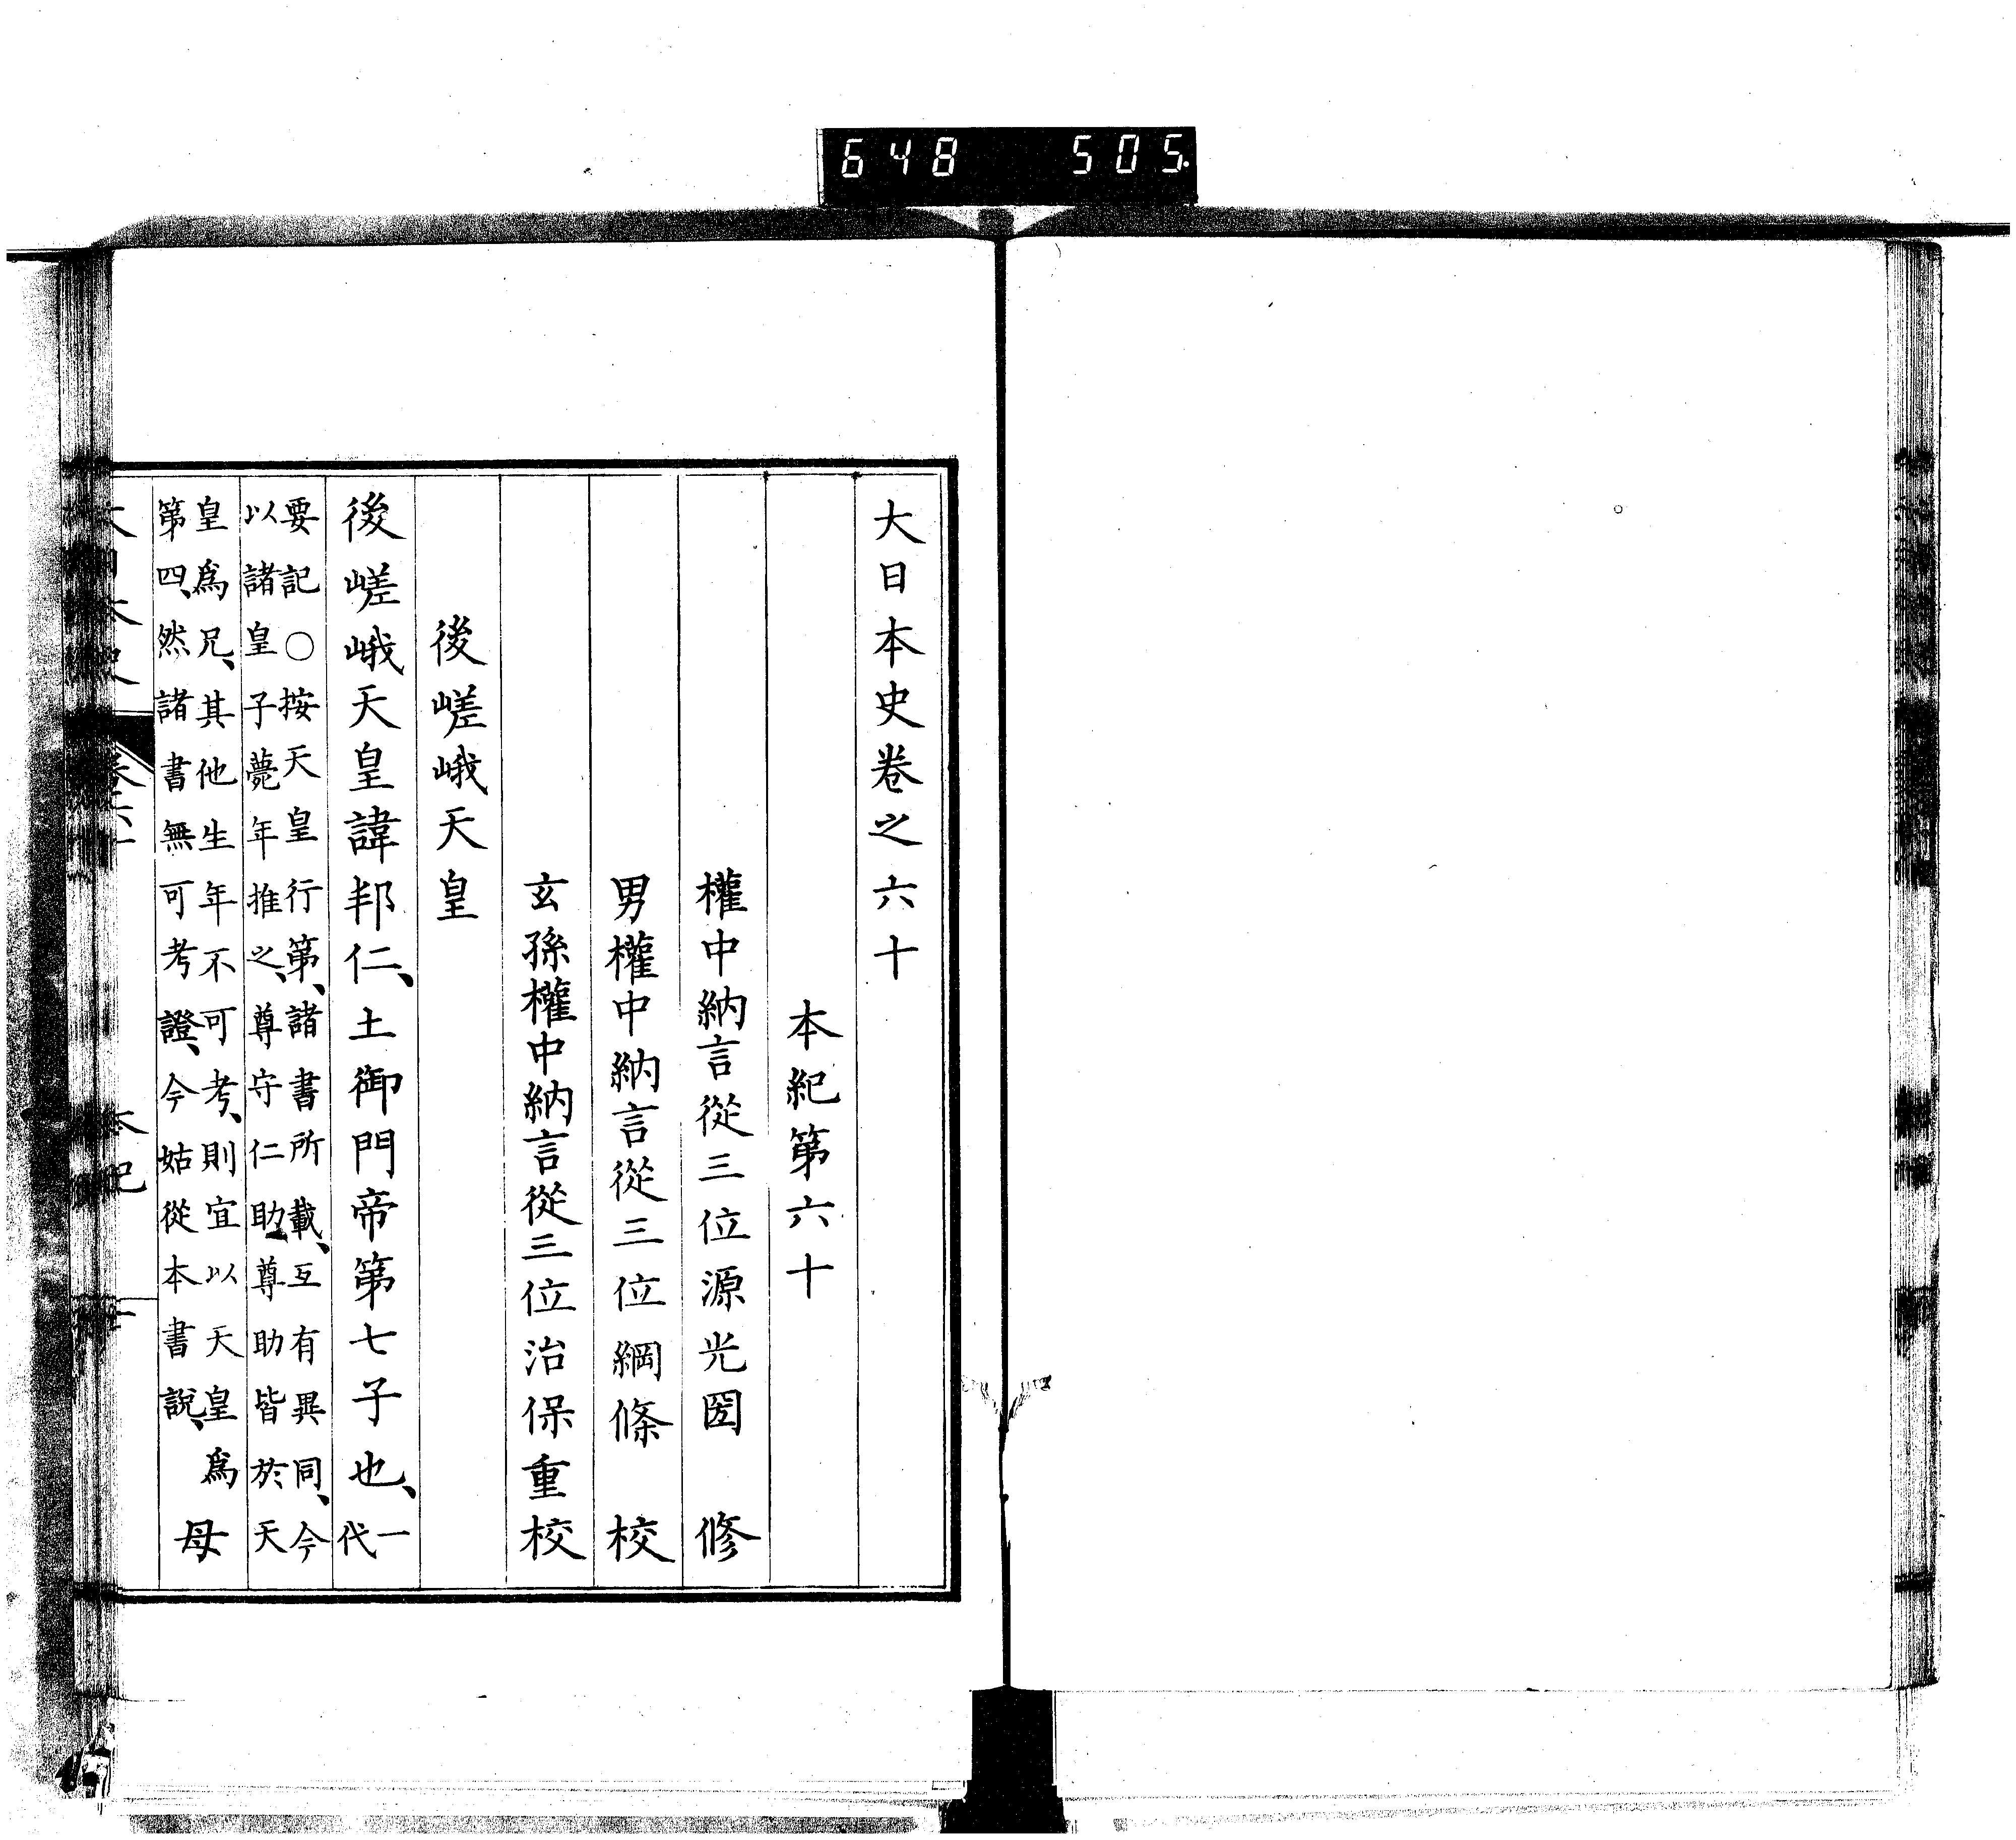 648 505
大日本史卷之六十
本紀第六十
權中納言從三位源光圀 修
男權中納言從三位綱條 校
玄孫權中納言從三位治保重校
後嵯峨天皇
後嵯峨天皇諱邦仁、土御門帝第七子也、一代
要記○按天皇行第、諸書所載、互有異同、今
以諸皇子薨年推之、尊守仁助、尊助皆於天
皇爲兄、其他生年不可考、則宜以天皇爲
第四、然諸書無可考證、今姑從本書說、母